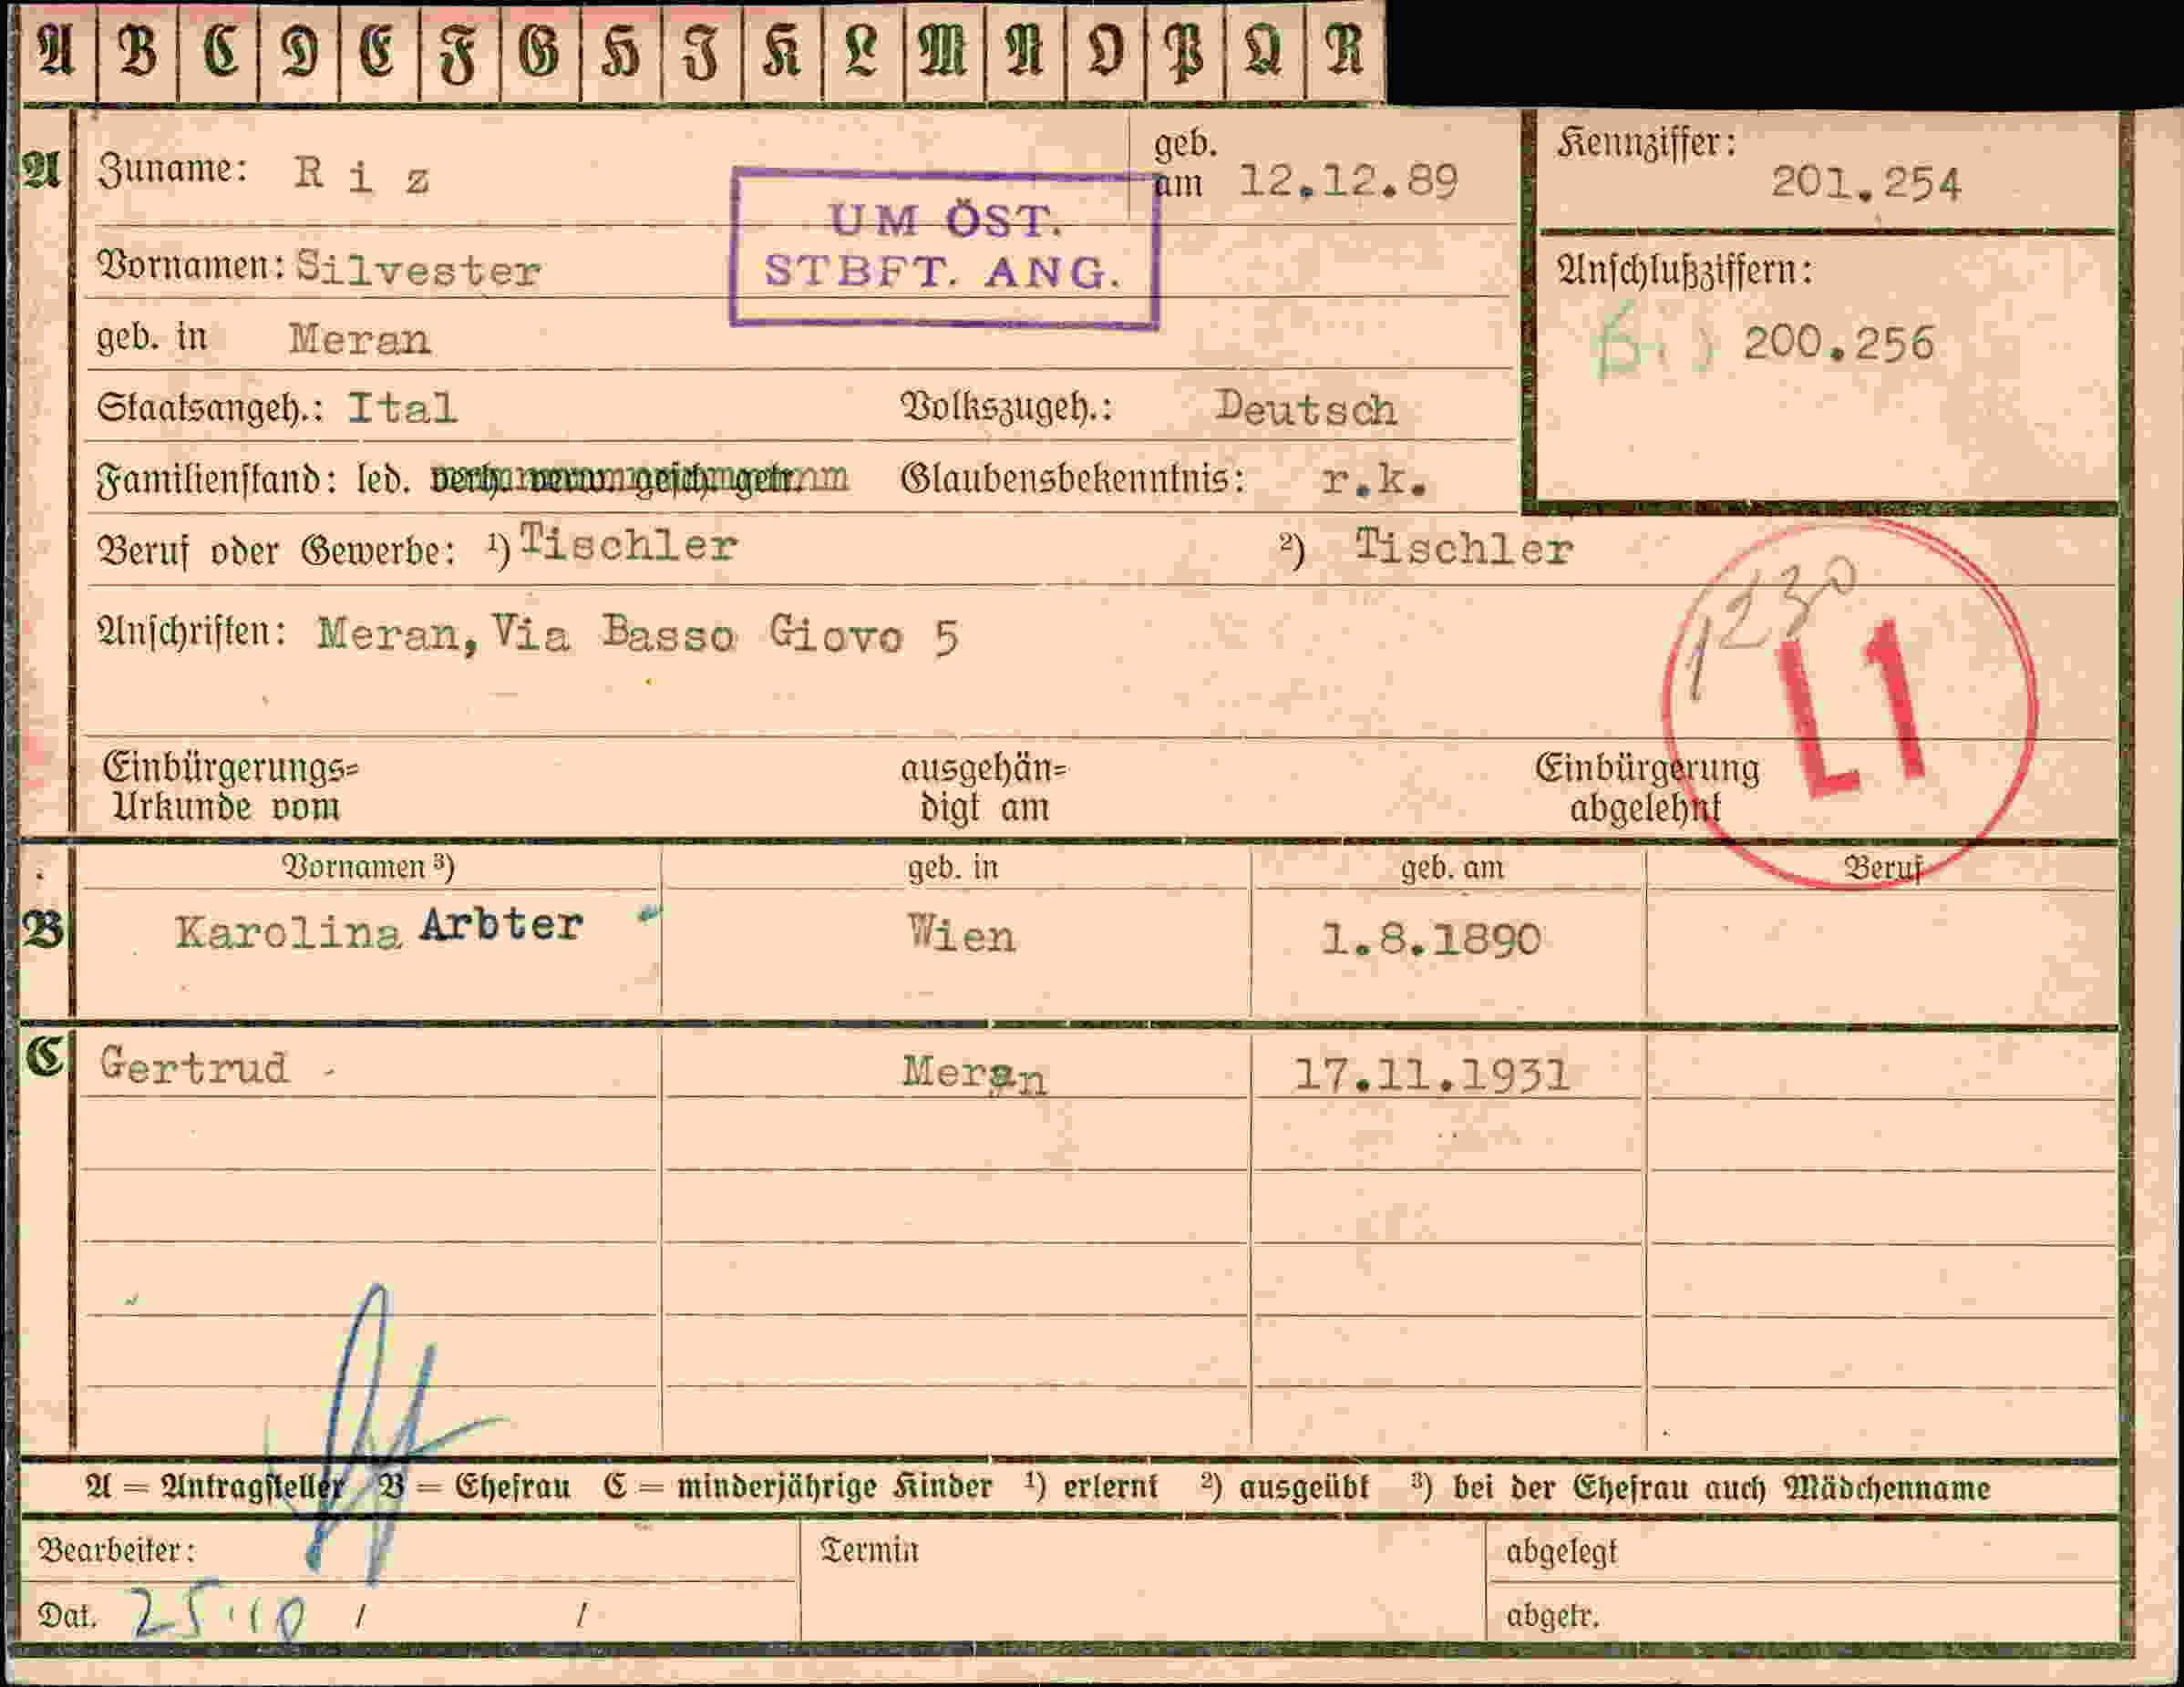 A B C D E F G H J K L M N O P Q R
A Zuname: Riz geb. am 12.12.89 Kennziffer: 201.254
UM ÖST.
STBFT. ANG.
Vornamen: Silvester Anschlußziffern:
geb. in Meran 200.256
Staatsangeh.: Ital Volkszugeh.: Deutsch
Familienstand: led. Glaubensbekenntnis: r.k.
Beruf oder Gewerbe: ¹) Tischler ²) Tischler
1230
L1
Anschriften: Meran, Via Basso Giovo 5
Einbürgerungs= ausgehän= Einbürgerung
Urkunde vom digt am abgelehnt
Vornamen ³) geb. in geb. am Beruf
B Karolina Arbter Wien 1.8.1890
C Gertrud - Meran 17.11.1931
A = Antragsteller B = Ehefrau C = minderjährige Kinder ¹) erlernt ²) ausgeübt ³) bei der Ehefrau auch Mädchenname
Bearbeiter: Termin abgelegt
Dat. 25.10 / / abgetr.